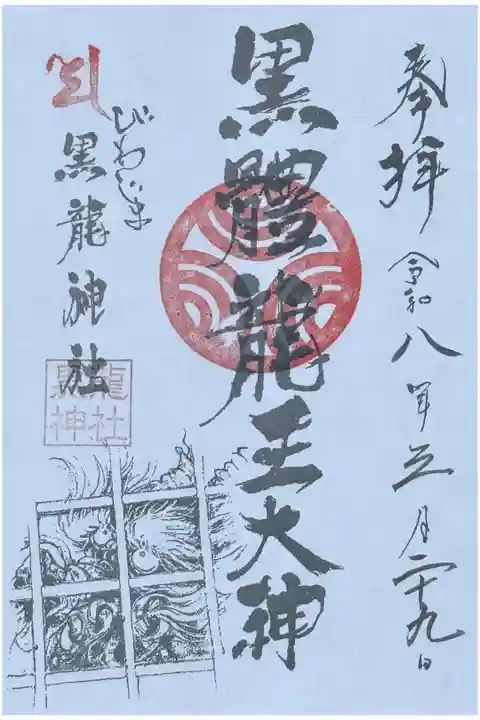 奉拝 令和八年三月二十九日
黒體龍王大神
びわじま
黒龍神社
黒龍神社